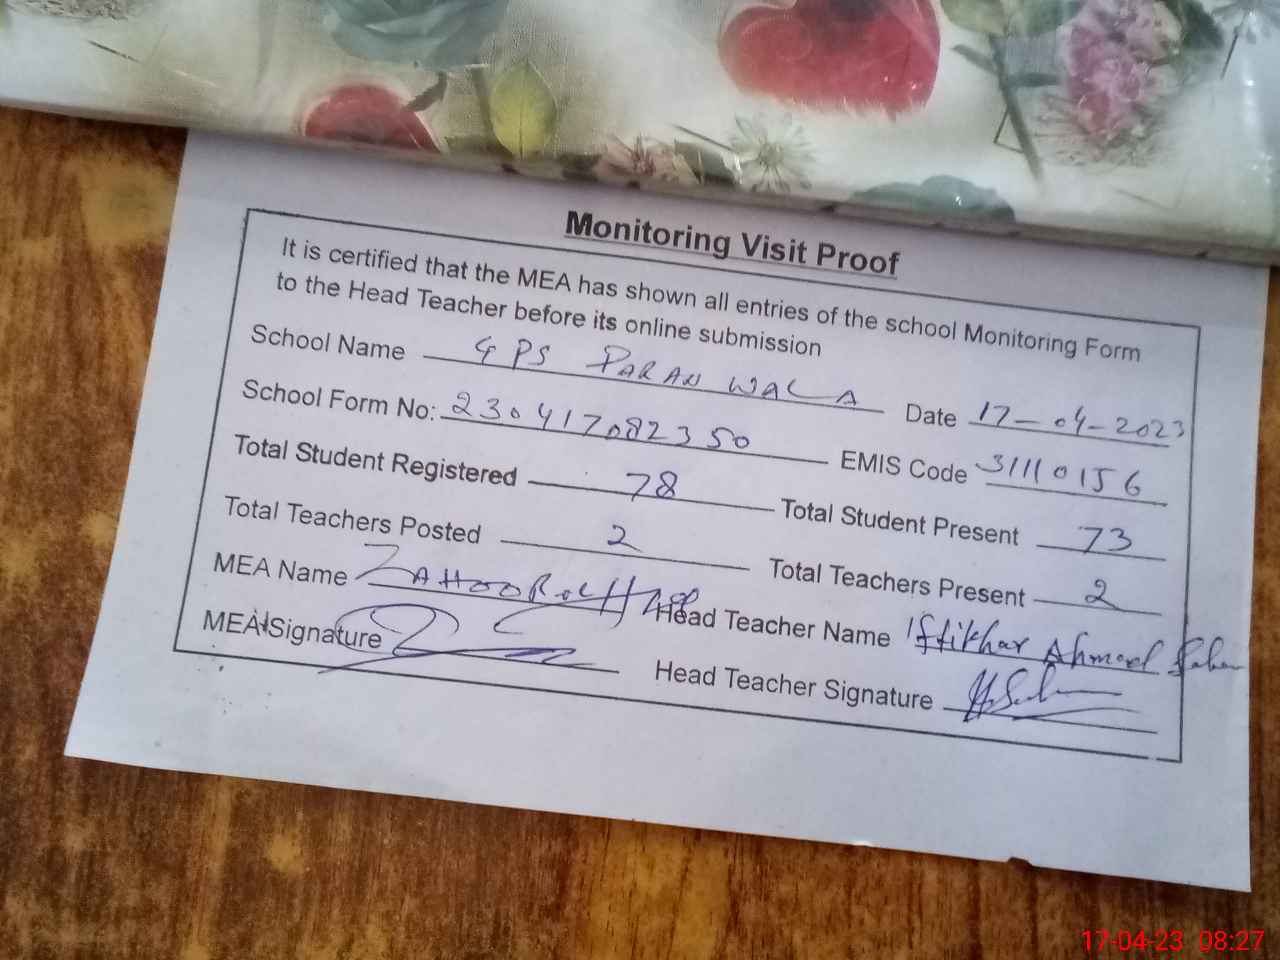 Monitoring Visit Proof
It is certified that the MEA has shown all entries of the school Monitoring Form
to the Head Teacher before its online submission
School Name GPS PARAN WALA Date 17-04-2023
School Form No: 230417082350 EMIS Code 31110156
Total Student Registered 78 Total Student Present 73
Total Teachers Posted 2 Total Teachers Present 2
MEA Name ZAHOOR Head Teacher Name Iftikhar Ahmad
MEA Signature Head Teacher Signature
17-04-23 08:27